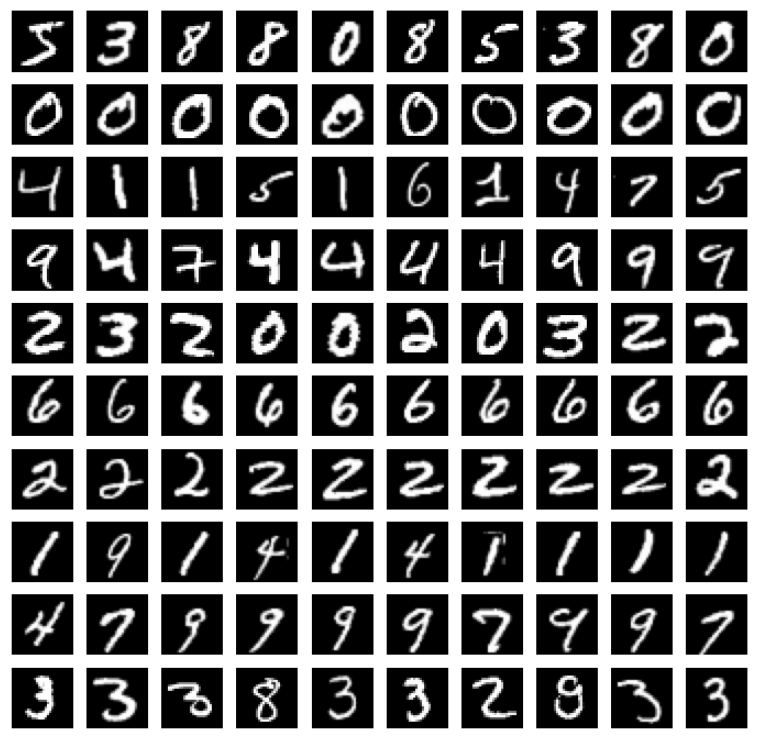 5 3 8 8 0 8 5 3 8 0
0 0 0 0 0 0 0 0 0 0
4 1 1 5 1 6 1 4 7 5
9 4 7 4 4 4 4 9 9 9
2 3 2 0 0 2 0 3 2 2
6 6 6 6 6 6 6 6 6 6
2 2 2 2 2 2 2 2 2 2
1 9 1 4 1 4 1 1 1 1
4 7 9 9 9 9 7 9 9 7
3 3 3 8 3 3 2 8 3 3